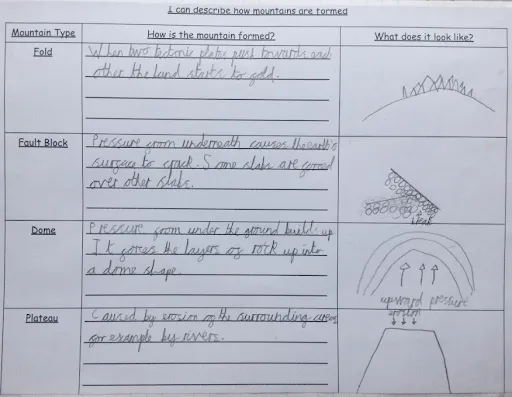 I can describe how mountains are formed
Mountain Type How is the mountain formed? What does it look like?
Fold
When two tectonic plates push towards each
other the land starts to fold.
Fault Block
Pressure from underneath causes the earth's
surface to crack. Some slabs are forced
over other slabs.
Dome
Pressure from under the ground builds up
It forces the layers of rock up into
a dome shape.
upward pressure
Plateau
Caused by erosion of the surrounding areas
for example by rivers.
erosion